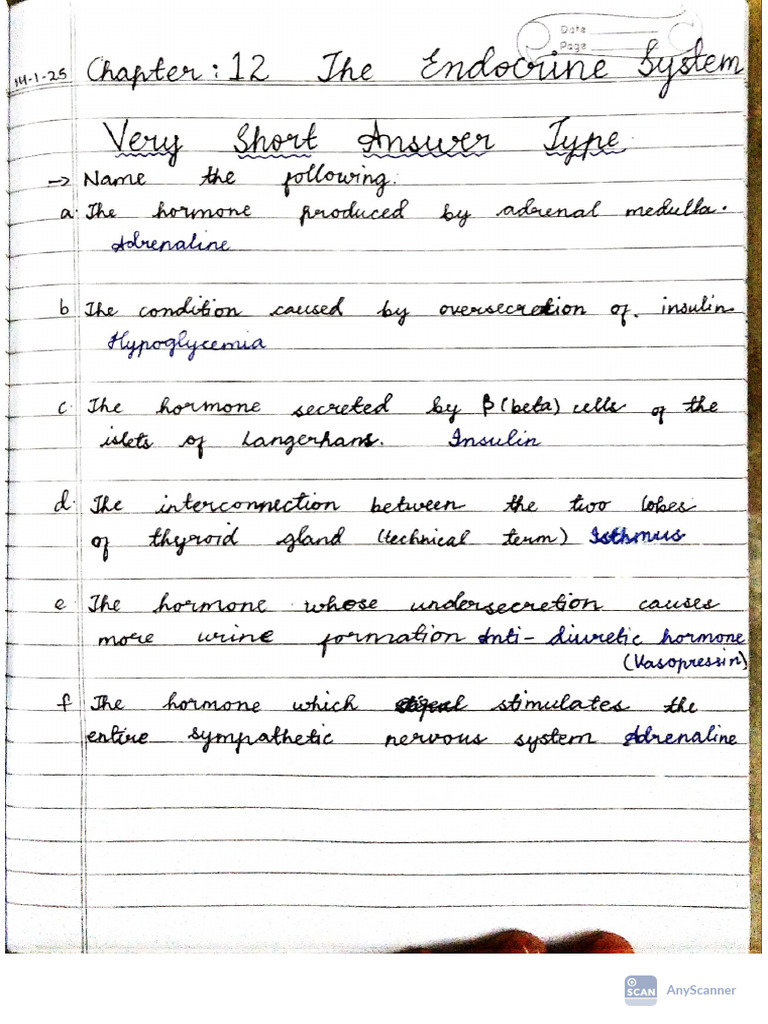 Date
Page
14-1-25 Chapter : 12 The Endocrine System
Very Short Answer Type
→ Name the following:
a. The hormone produced by adrenal medulla.
Adrenaline
b The condition caused by oversecretion of. insulin
Hypoglycemia
c. The hormone secreted by β (beta) cells of the
islets of Langerhans. Insulin
d. The interconnection between the two lobes
of thyroid gland (technical term) Isthmus
e The hormone whose undersecretion causes
more urine formation Anti-diuretic hormone
(Vasopressin)
f The hormone which stimulates the
entire sympathetic nervous system Adrenaline
SCAN AnyScanner